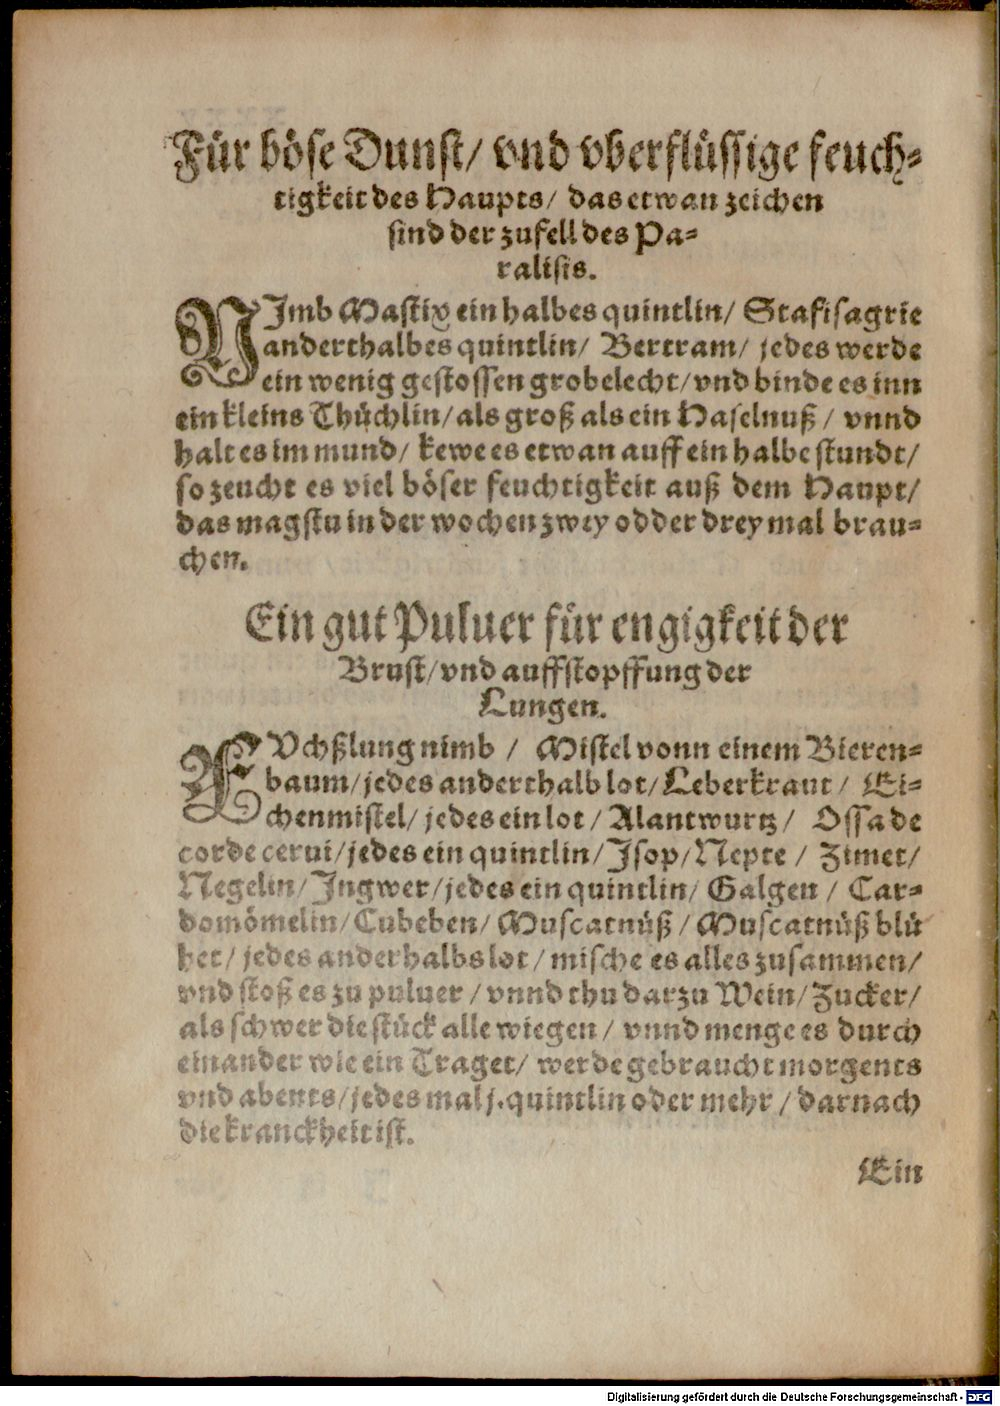 Für böse Dunst/ vnd vberflüssige feuch-
tigkeit des Haupts/ das etwan zeichen
sind der zufell des Pa-
ralisis.
NJmb Mastix ein halbes quintlin/ Stafisagrie
anderthalbes quintlin/ Bertram/ jedes werde
ein wenig gestossen grobelecht/ vnd binde es inn
ein kleins Thüchlin/ als groß als ein Haselnuß/ vnnd
halt es im mund/ kewe es etwan auff ein halbe stundt/
so zeucht es viel böser feuchtigkeit auß dem Haupt/
das magstu in der wochen zwey odder drey mal brau-
chen.
Ein gut Puluer für engigkeit der
Brust/ vnd auffstopffung der
Lungen.
FVchßlung nimb / Mistel vonn einem Bieren-
baum/ jedes anderthalb lot/ Leberkraut/ Ei-
chenmistel/ jedes ein lot/ Alantwurtz/ Ossa de
corde cerui/ jedes ein quintlin/ Jsop/ Nepte / Zimet/
Negelin/ Jngwer/ jedes ein quintlin/ Galgen / Car-
domömelin/ Cubeben/ Muscatnüß/ Muscatnüß blü
het/ jedes anderhalbs lot/ mische es alles zusammen/
vnd stoß es zu puluer/ vnnd thu darzu Wein/ Zucker/
als schwer die stück alle wiegen/ vnnd menge es durch
einander wie ein Traget/ werde gebraucht morgents
vnd abents/ jedes mal j. quintlin oder mehr/ darnach
die kranckheit ist.
Ein
Digitalisierung gefördert durch die Deutsche Forschungsgemeinschaft - DFG